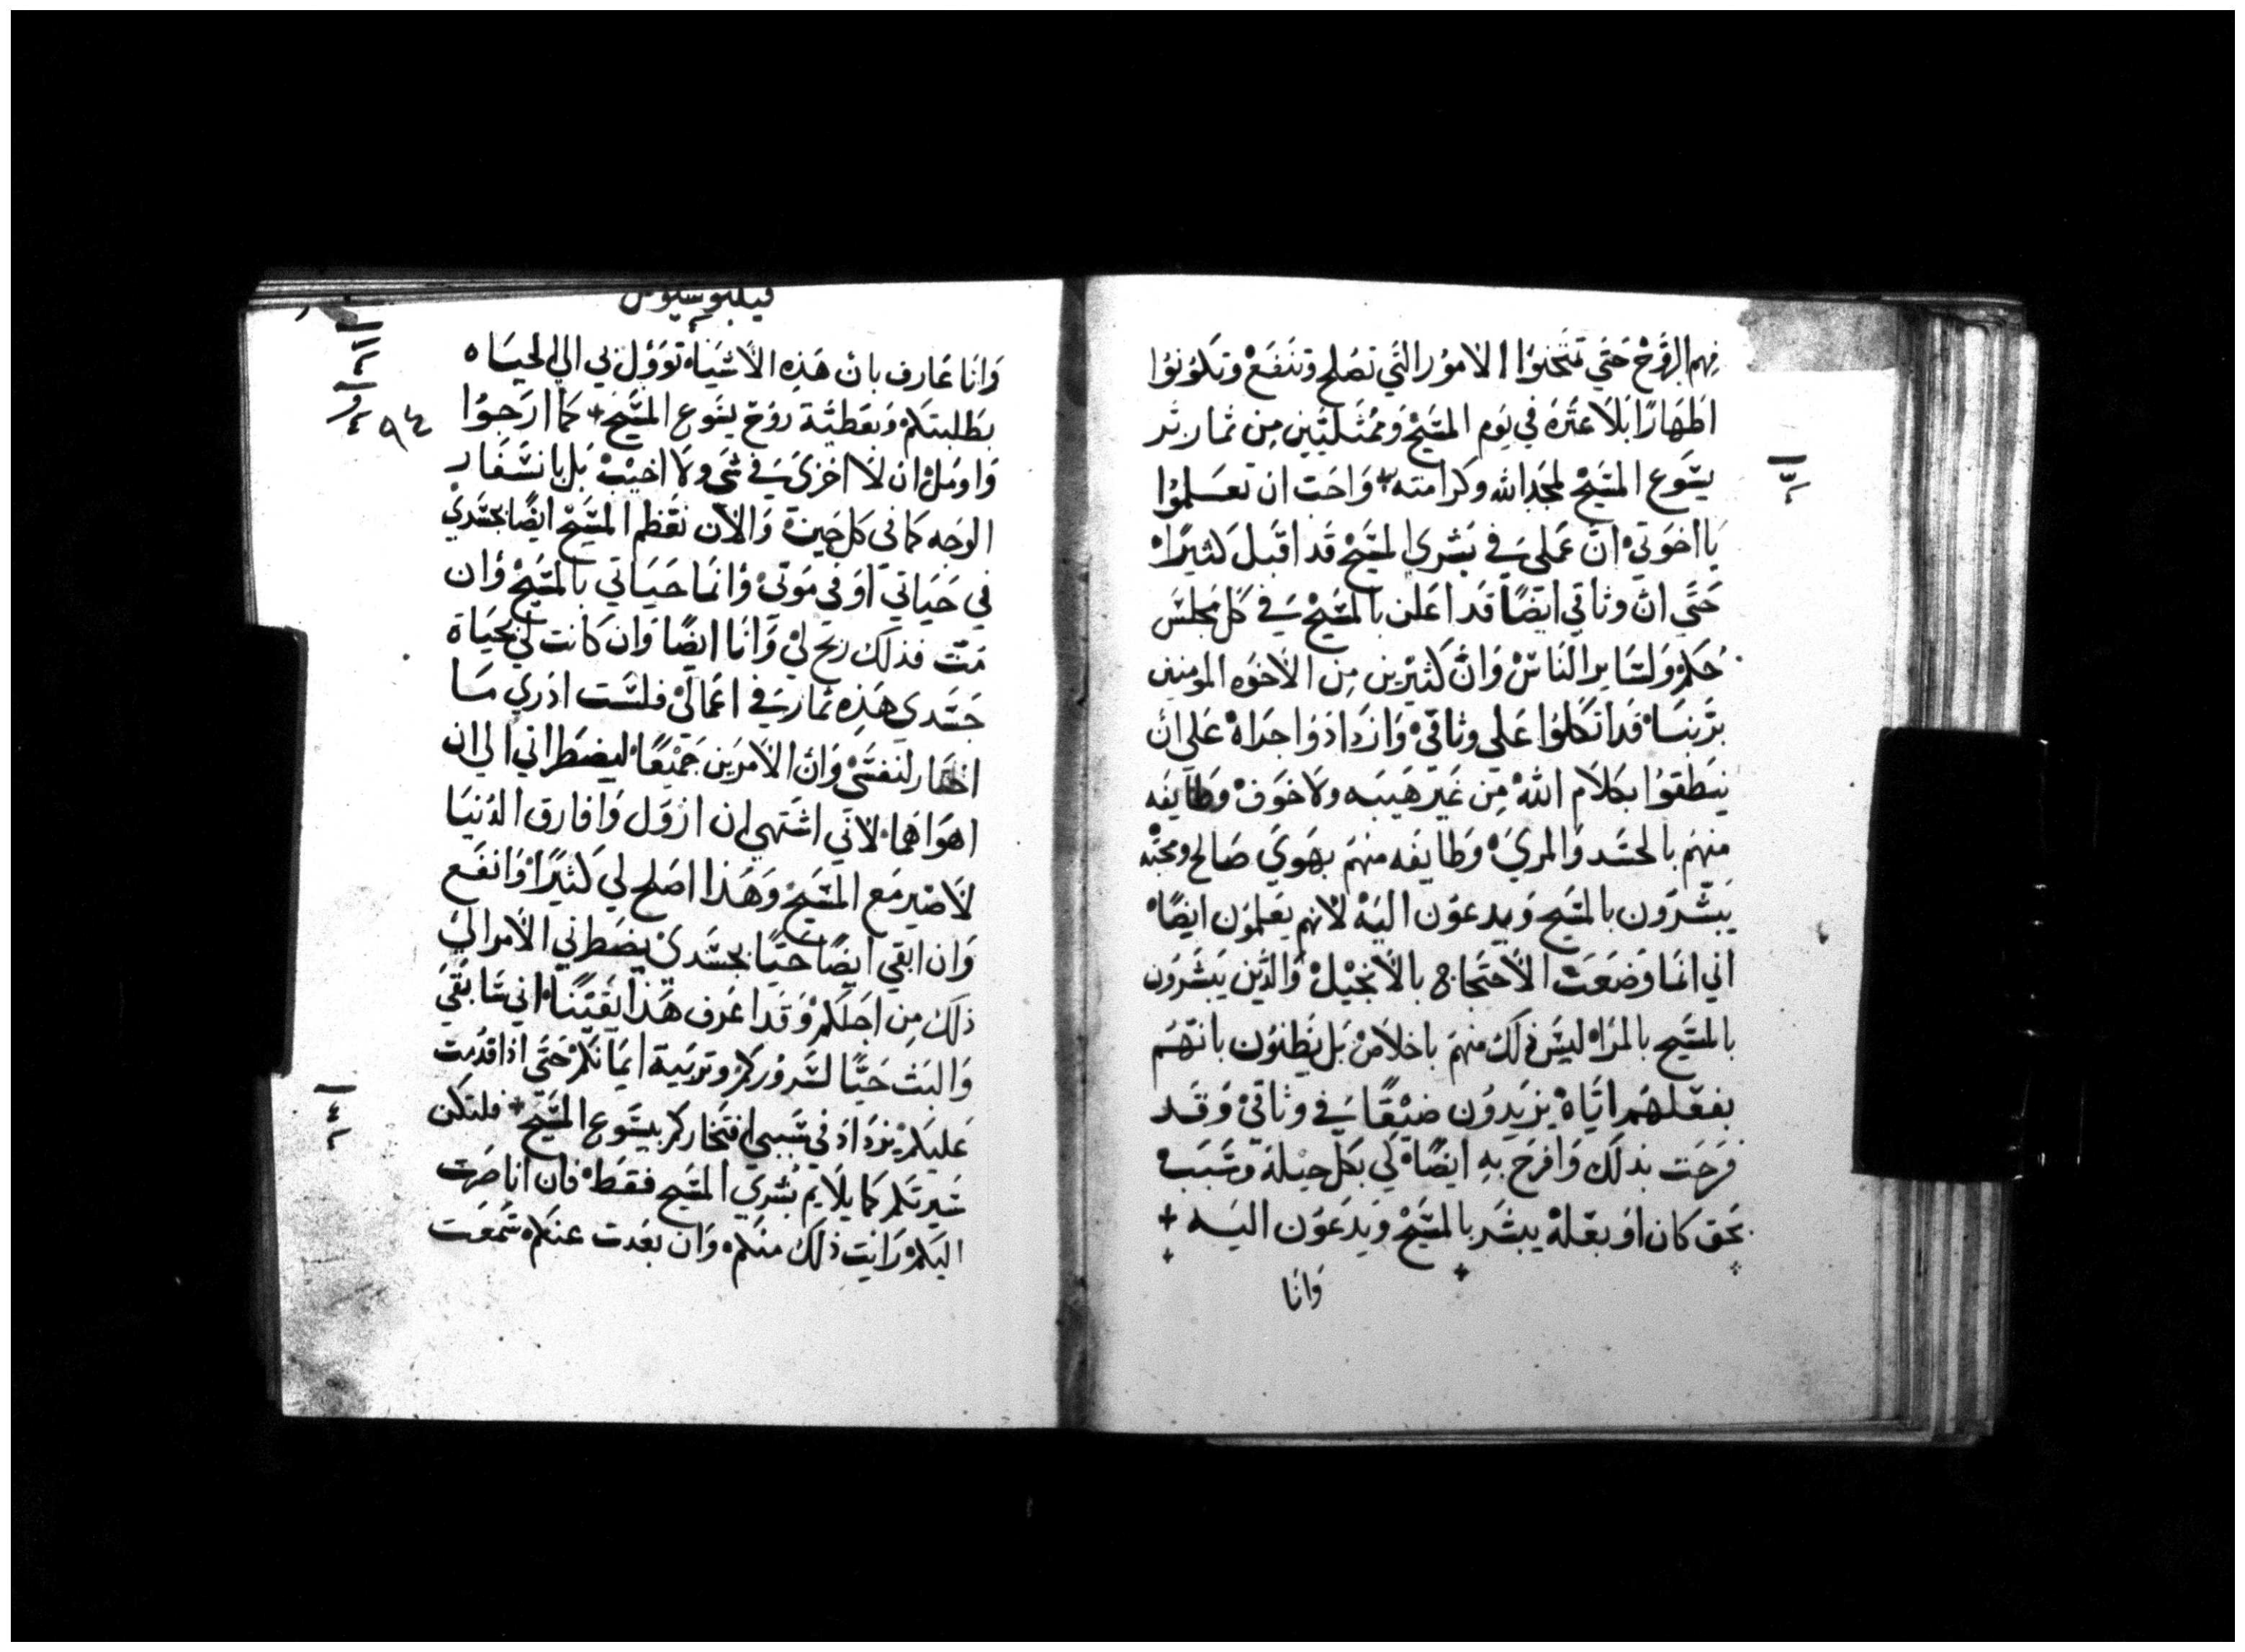 فهم الروح حتي تمتحنوا الامور التي تصلح وتنفع وتكونوا
اطهارا بلا عثره في يوم المسيح وممتليين من ثمار بر
يسوع المسيح لمجد الله وكرامته + واحب ان تعلموا
يا اخوتي ان عملي في بشري المسيح قد اقبل كثيرا
حتي ان وثاقي ايضا قد اعلن بالمسيح في كل مجلس
حكم ولساير الناس وان كثيرين من الاخوه المومنين
بربنا قد اتكلوا علي وثاقي وازدادوا جداه علي ان
ينطقوا بكلام الله من غير هيبه ولا خوف وطايفه
منهم بالحسد والمري وطايفه منهم بهوي صالح ومحبه
يبشرون بالمسيح ويدعون اليه لانهم يعلمون ايضا
اني انما وضعت الاحتجاج بالانجيل والذين يبشرون
بالمسيح بالمراه ليس ذلك منهم باخلاص بل يظنون بانهم
بفعلهم اياه يزيدون ضيقا في وثاقي وقد
فرحت بذلك وافرح به ايضا لي بكل حيلة وسبب
بحق كان او بعلة يبشر بالمسيح ويدعون اليه +
وانا
فيلبوسيوس
وانا عارف بان هذه الاشياء توول بي الي الحياه
بطلبتكم وبعطية روح يسوع المسيح + كما ارجوا
واومل ان لا اخزي في شي ولا اخيب بل بانسفار
الوجه كما في كل حين والان نعظم المسيح ايضا بجسدي
في حياتي او في موتي وانما حياتي بالمسيح وان
مت فذلك ربح لي وانا ايضا وان كانت لي بحياة
جسدي هذه ثمار في اعمالي فلست ادري ما
اختار لنفسي وان الامرين جميعا ليضطراني الي ان
اهواهما لاني اشتهي ان ازول وافارق الدنيا
لاصير مع المسيح وهذا اصلح لي كثيرا وانفع
وان ابقي ايضا حيا بجسدي يضطرني الامر الي
ذلك من اجلكم وقد اعرف هذا يقينا اني سابقي
والبث حيا لسروركم وتربية ايمانكم حتي اذا قدمت
عليكم يزداد في سببي افتخاركم بيسوع المسيح + فلتكن
سيرتكم كما يلايم بشري المسيح فقط فان انا صرت
اليكم رايت ذلك منكم وان بعدت عنكم سمعت